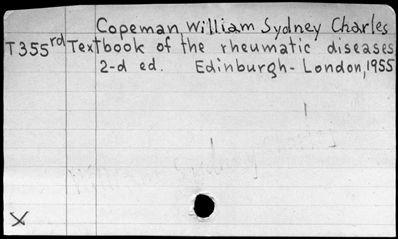 Copeman, William Sydney Charles
T355rd Textbook of the rheumatic diseases
2-d ed. Edinburgh-London, 1955
X